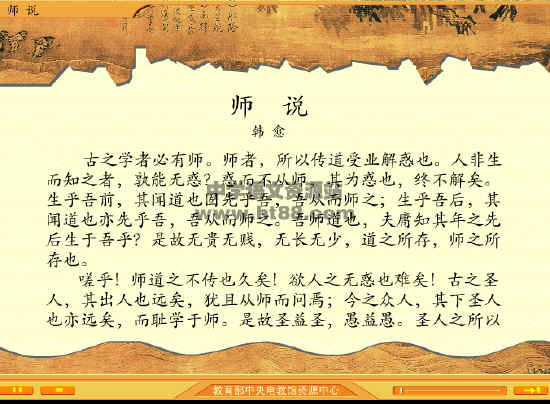 师 说
师 说
韩 愈
古之学者必有师。师者，所以传道受业解惑也。人非生
而知之者，孰能无惑？惑而不从师，其为惑也，终不解矣。
生乎吾前，其闻道也固先乎吾，吾从而师之；生乎吾后，其
闻道也亦先乎吾，吾从而师之。吾师道也，夫庸知其年之先
后生于吾乎？是故无贵无贱，无长无少，道之所存，师之所
存也。
嗟乎！师道之不传也久矣！欲人之无惑也难矣！古之圣
人，其出人也远矣，犹且从师而问焉；今之众人，其下圣人
也亦远矣，而耻学于师。是故圣益圣，愚益愚。圣人之所以
教育部中央电教馆资源中心